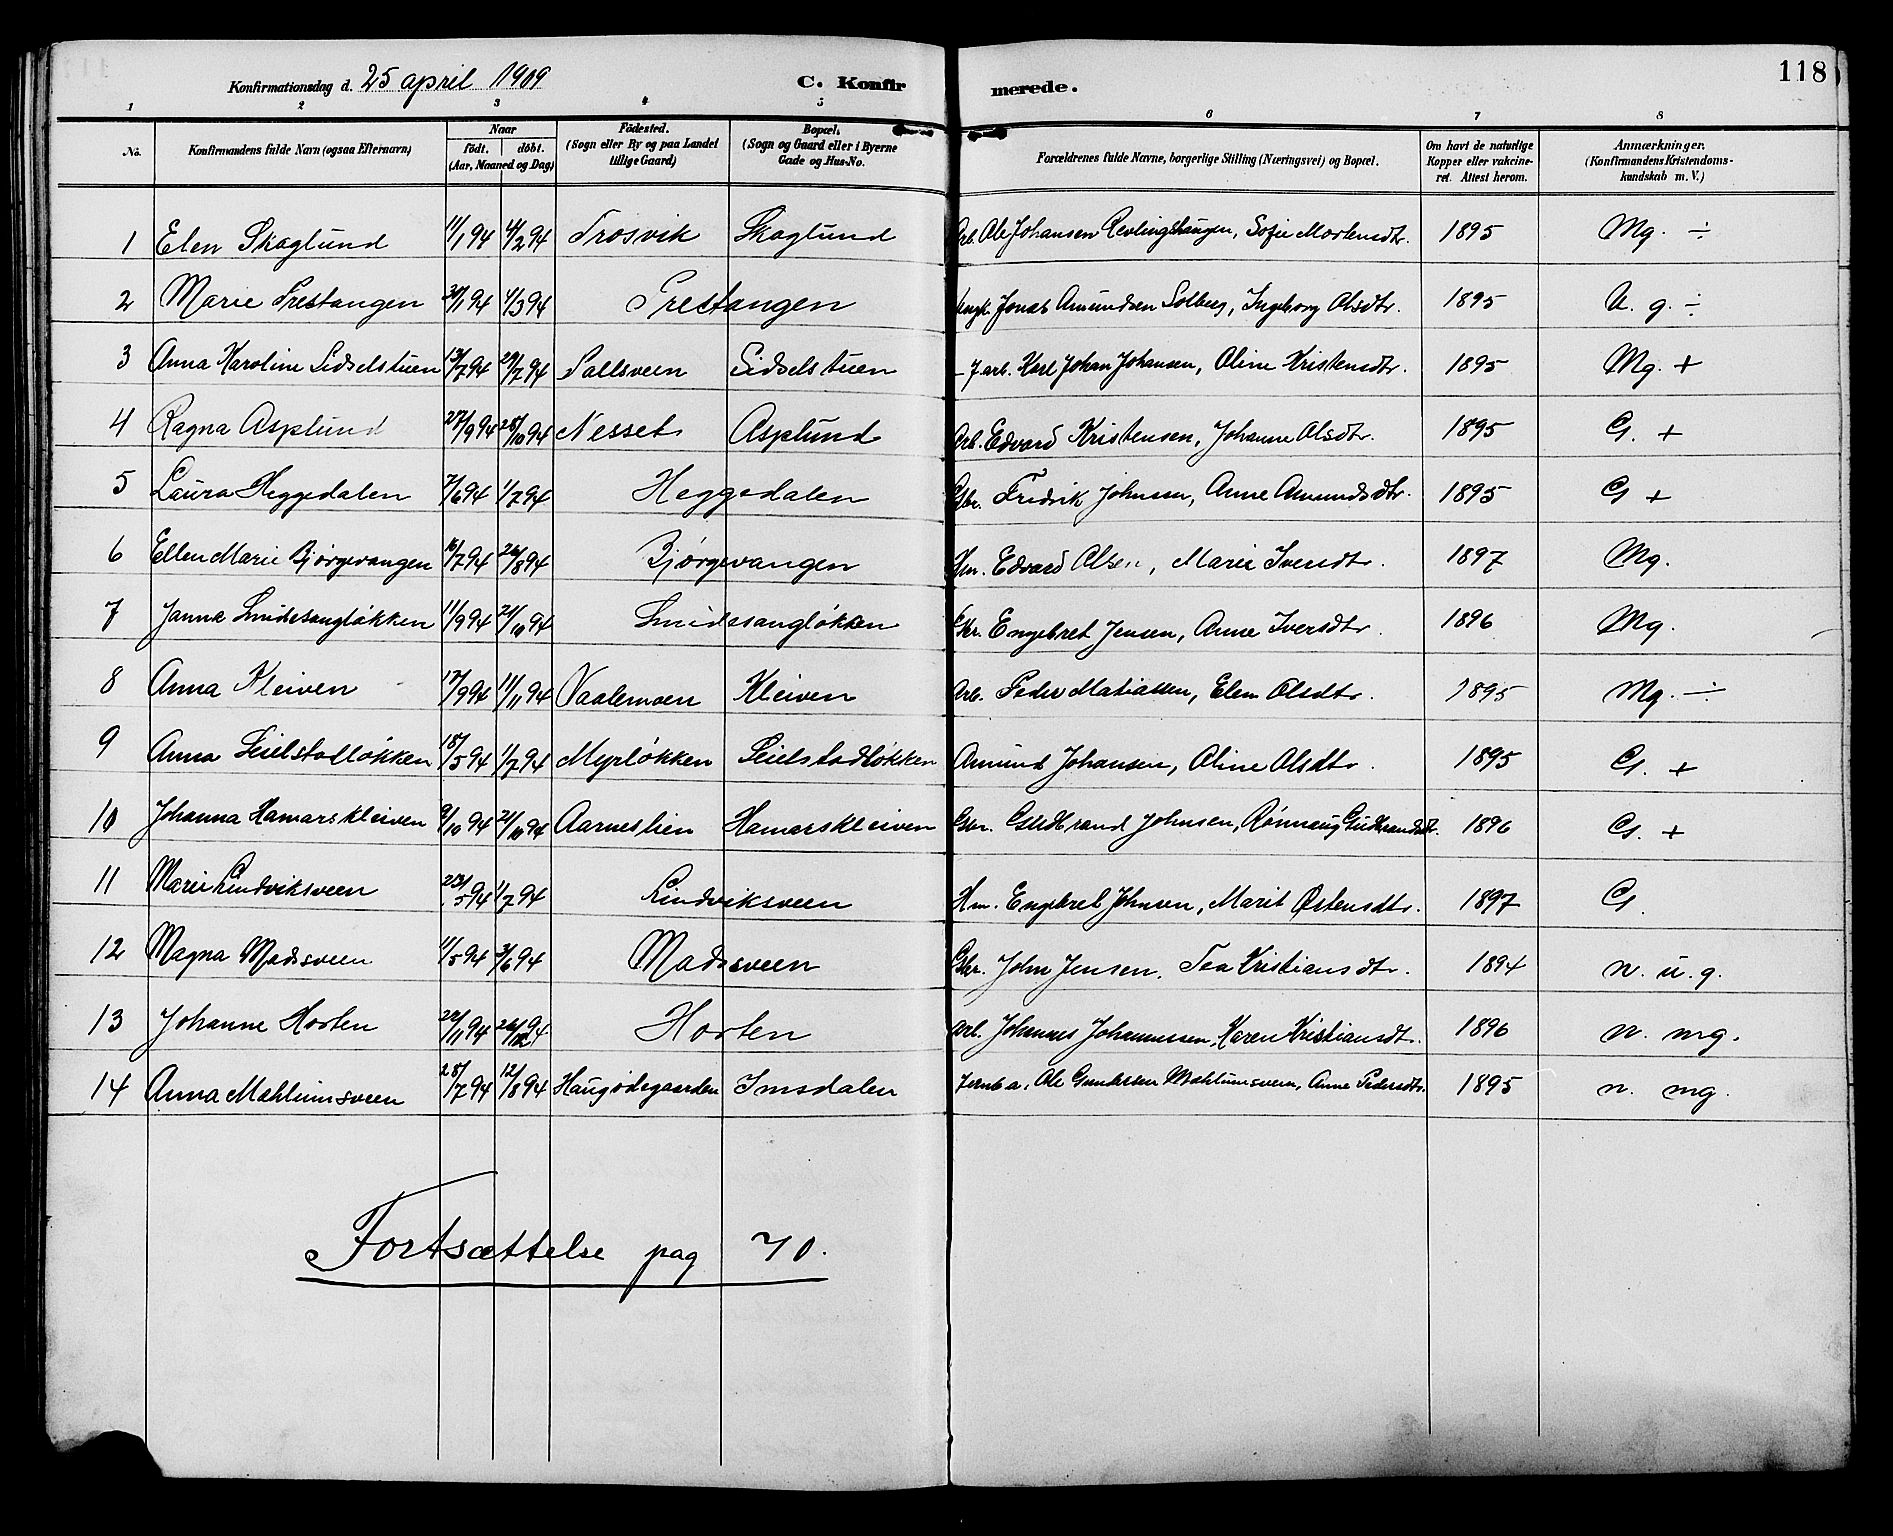 118
Konfirmationsdag d. 25 april 1909 C. Konfirmerede.
1 2 3 4 5 6 7 8
No. Konfirmandens fulde Navn (ogsaa Efternavn) Naar födt. döbt. (Aar, Maaned og Dag) Födested. (Sogn eller By og paa Landet tillige Gaard) Bopæl. (Sogn og Gaard eller i Byerne Gade og Hus-No. Forældrenes fulde Navne, borgerlige Stilling (Næringsvei) og Bopæl. Om havt de naturlige Kopper eller vakcineret. Attest herom. Anmærkninger. (Konfirmandens Kristendomskundskab m. V.)
1 Elen Skoglund 11/1 94 4/2 94 Trosvik Skoglund Arb. Ole Johansen Revlingshaugen, Sofie Mortensdtr. 1895 Mg. ÷
2 Marie Prestangen 30/1 94 4/3 94 Prestangen Jonas Amundsen Solberg, Ingeborg Olsdtr. 1895 U. g. ÷
3 Anna Karoline Sidselstuen 13/7 94 29/7 94 Sollsveen Sidselstuen J.arb. Karl Johan Johansen, Oline Kristensdtr. 1895 Mg. +
4 Ragna Asplund 27/9 94 28/10 94 Nesset Asplund Arb. Edvard Kristensen, Johanne Olsdtr. 1895 G. +
5 Laura Heggedalen 7/6 94 1/7 94 Heggedalen Gbr. Fredrik Johnsen, Anne Amundsdtr. 1895 G +
6 Ellen Marie Bjørgevangen 16/7 94 26/8 94 Bjørgevangen Hm. Edvard Olsen, Marie Iversdtr. 1897 Mg.
7 Janna Smidesangløkken 11/9 94 21/10 94 Smidesangløkken Gbr. Engebret Jensen, Anne Iversdtr. 1896 Mg.
8 Anna Kleiven 17/9 94 11/11 94 Vaalemoen Kleiven Arb. Peder Matiassen, Elen Olsdtr. 1895 Mg. ÷
9 Anna Seielstadløkken 18/5 94 1/7 94 Myrløkken Seielstadløkken Amund Johansen, Oline Olsdtr. 1895 G. +
10 Johanna Hamarskleiven 9/10 94 21/10 94 Aarneslien Hamarskleiven Gbr. Gudbrand Johnsen, Rønnaug Gudbrandsdtr. 1896 G. +
11 Marie Lindviksveen 23/5 94 1/7 94 Lindviksveen Hm. Engebret Johnsen, Marit Østensdtr. 1897 G.
12 Magna Madsveen 11/5 94 3/6 94 Madsveen Gbr. John Jensen, Tea Kristiansdtr. 1894 n. u. g.
13 Johanne Horten 22/11 94 26/12 94 Horten Arb. Johannes Johannessen, Karen Kristiansdtr. 1896 n. mg.
14 Anna Mæhlumsveen 28/7 94 12/8 94 Haugødegaarden Imsdalen Jernb a. Ole Gundersen Mæhlumsveen, Anne Pedersdtr. 1895 n. mg.
Fortsættelse pag 70.